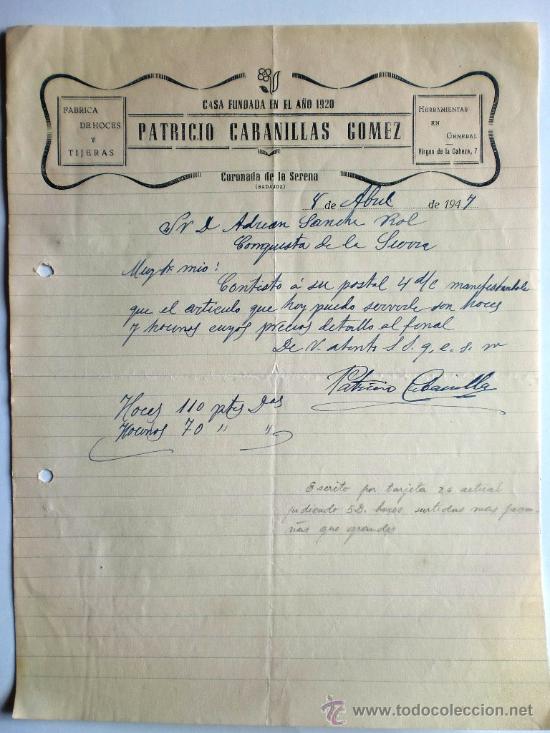 CASA FUNDADA EN EL AÑO 1920
PATRICIO CABANILLAS GOMEZ
FABRICA
DE HOCES
Y
TIJERAS
HERRAMIENTAS
EN
GENERAL
Virgen de la Cabeza, 7
Coronada de la Serena
(BADAJOZ)
8 de Abril de 1947
Sr D. Adrian Sanche Rol
Conquista de la Sierra
Muy Sr mio:
Contesto á su postal 4 d/c manifestandole
que el articulo que hoy puedo servirle son hoces
y hocinos cuyos precios detallo al final
De V. atento S. S. q. e. s. m
Patricio Cabanillas
Hoces 110 ptas Das
Hocinos 70 " "
Escrito por tarjeta 26 actual
pidiendo 5 D. hoces surtidas mas peque-
ñas que grandes
todocoleccion
www.todocoleccion.net